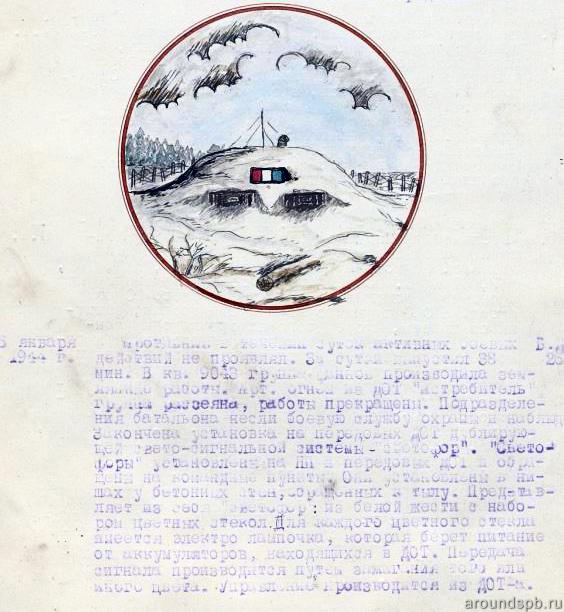 января Противник в течении суток активных боевых
1944 г. действий не проявлял. За сутки выпустил 38
мин. В кв. 9043 группа производила зем-
ляные работы. Арт. огнем из ДОТ "Истребитель"
группа рассеяна, работы прекращены. Подразделе-
ния батальона несли боевую службу охраны и наблюд
Закончена установка на передовых ДОТ дублирую-
щей свето-сигнальной системы- "светофор". "Свето-
форы" установлены на передовых ДОТ и обра-
щены на командные пункты. Они установлены в ни-
шах у бетонных стен, обращенных к тылу. Представ-
ляет из себя "светофор" из белой жести с набо-
ром цветных стекол. Для каждого цветного стекла
имеется электро лампочка, которая берет питание
от аккумуляторов, находящихся в ДОТ. Передача
сигнала производится путем зажигания того или
иного цвета. Управление производится из ДОТ-а.
aroundspb.ru